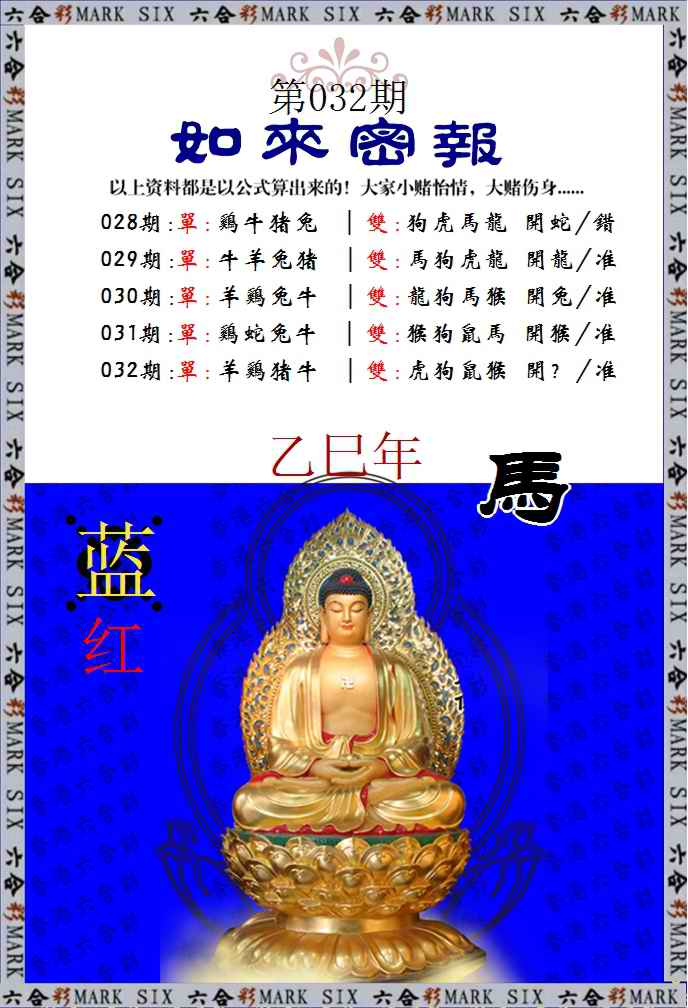 六合彩MARK SIX 六合彩MARK SIX 六合彩MARK SIX 六合彩MARK SIX 六合彩MARK SIX
第032期
如來密報
以上资料都是以公式算出来的！大家小赌怡情，大赌伤身......
028期:單:鷄牛猪兔 | 雙:狗虎馬龍 開蛇/錯
029期:單:牛羊兔猪 | 雙:馬狗虎龍 開龍/准
030期:單:羊鷄兔牛 | 雙:龍狗馬猴 開兔/准
031期:單:鷄蛇兔牛 | 雙:猴狗鼠馬 開猴/准
032期:單:羊鷄猪牛 | 雙:虎狗鼠猴 開?/准
乙巳年
馬
蓝
红
六合彩MARK SIX 六合彩MARK SIX 六合彩MARK SIX 六合彩MARK SIX 六合彩MARK SIX